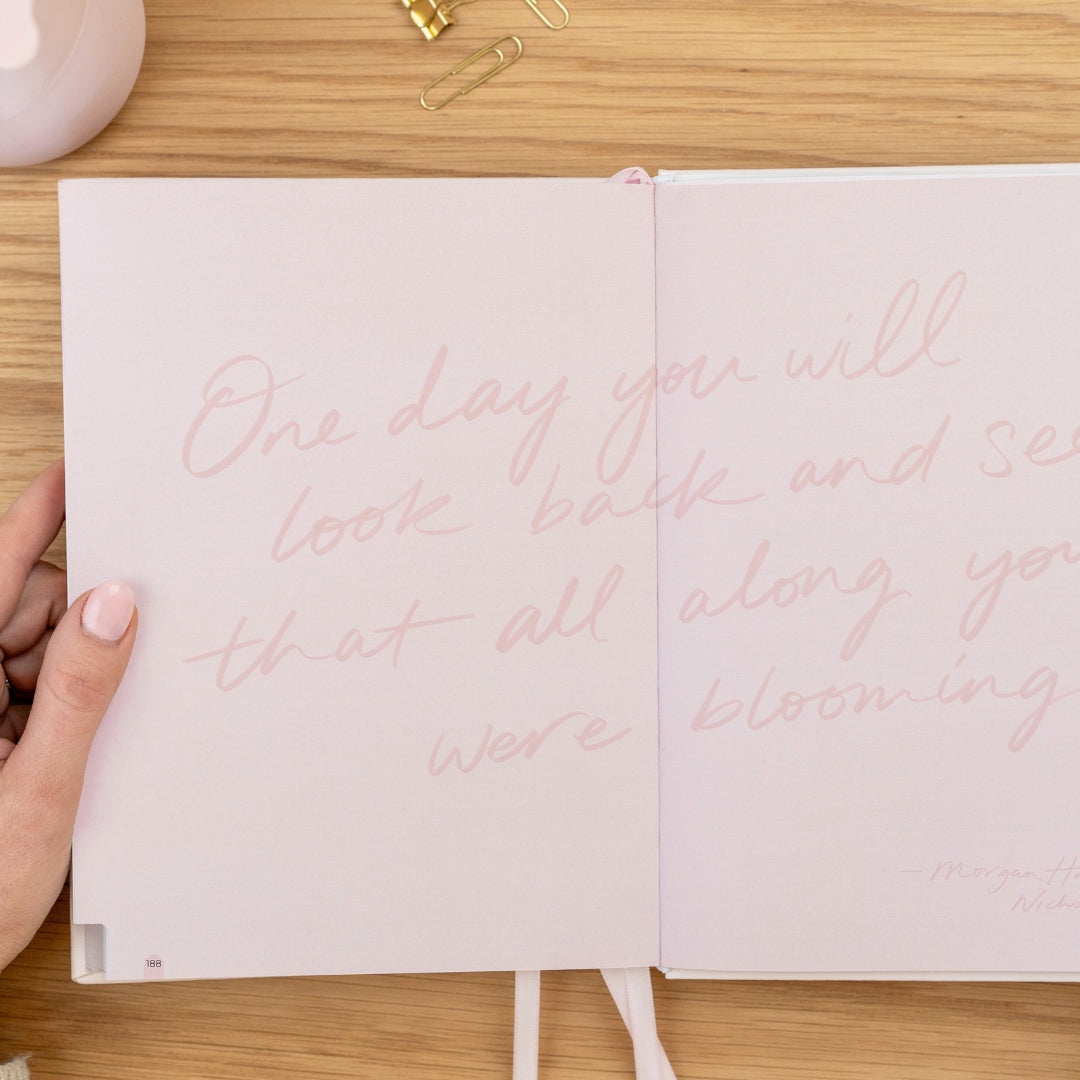 One day you will
look back and see
that all along you
were blooming
— Morgan
188